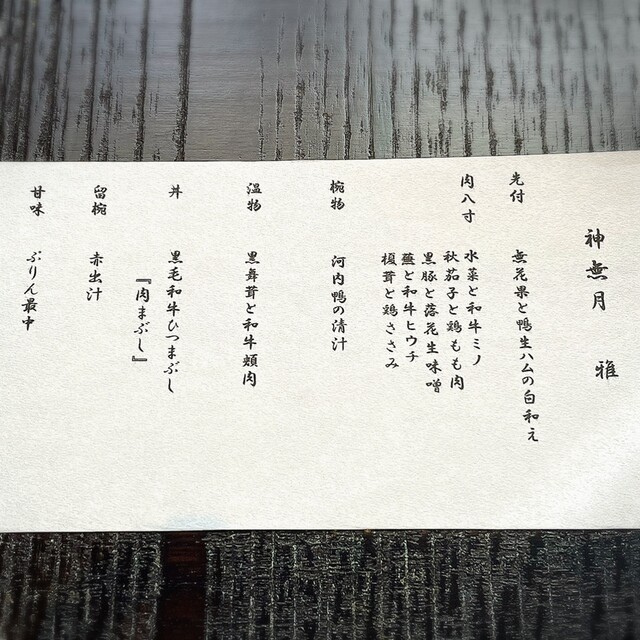 神無月　雅
先付　無花果と鴨生ハムの白和え
肉八寸　水菜と和牛ミノ
秋茄子と鶏もも肉
黒豚と落花生味噌
蓮と和牛ヒウチ
榎茸と鶏ささみ
椀物　河内鴨の清汁
温物　黒舞茸と和牛頬肉
丼　黒毛和牛ひつまぶし
『肉まぶし』
留椀　赤出汁
甘味　ぷりん最中